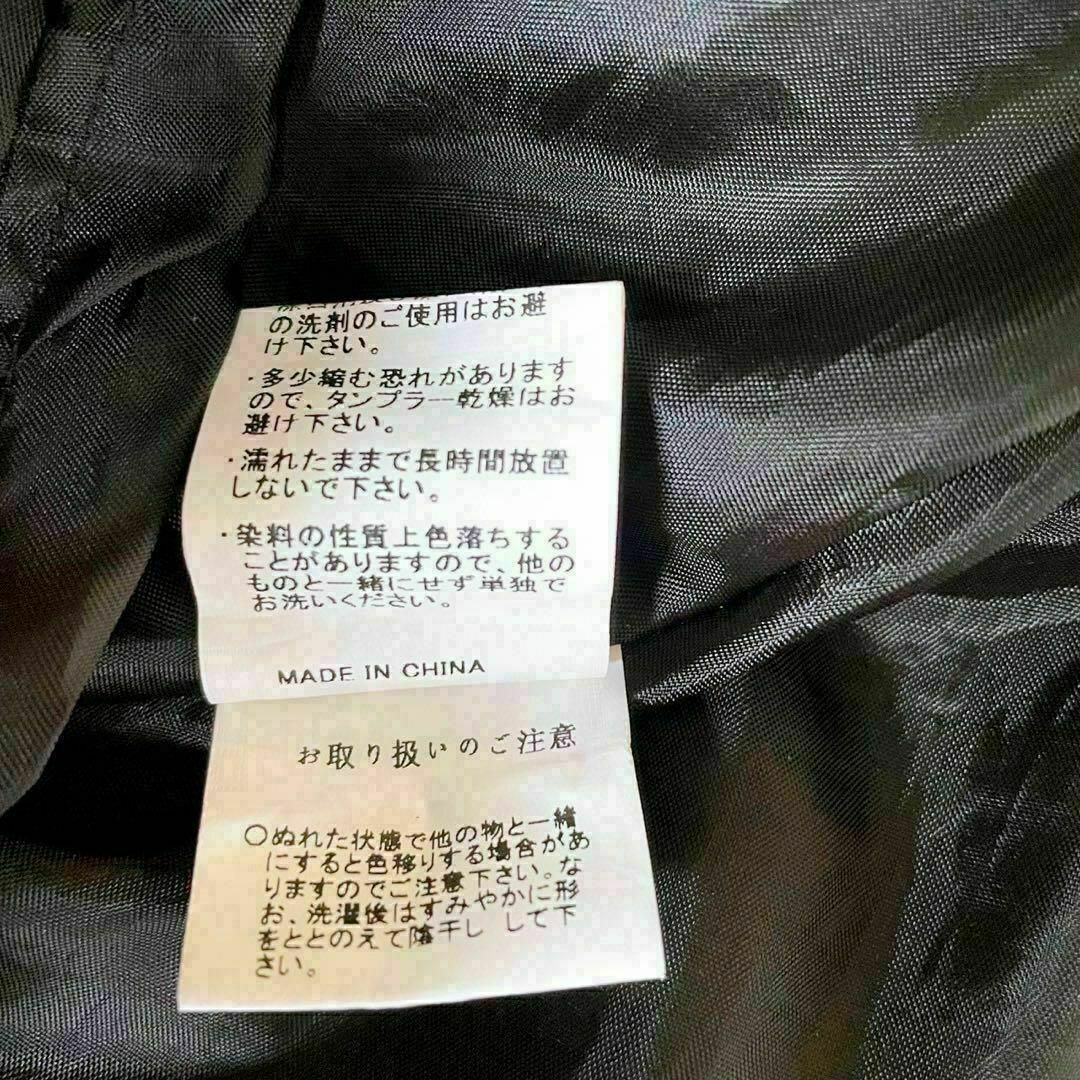 の洗剤のご使用はお避
け下さい。
・多少縮む恐れがあります
ので、タンプラー乾燥はお
避け下さい。
・濡れたままで長時間放置
しないで下さい。
・染料の性質上色落ちする
ことがありますので、他の
ものと一緒にせず単独で
お洗いください。
MADE IN CHINA
お取り扱いのご注意
○ぬれた状態で他の物と一緒
にすると色移りする場合があ
りますのでご注意下さい。な
お、洗濯後はすみやかに形
をととのえて陰干し して下
さい。